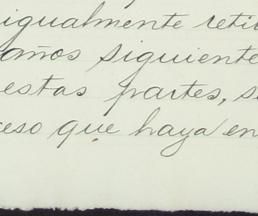 igualmente reti
años siguiente
estas partes, s
eso que haya en